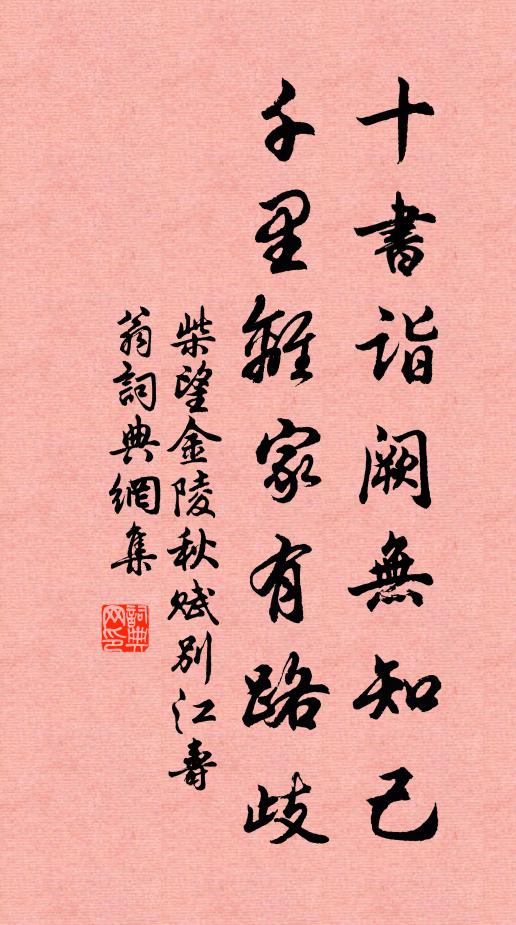 十書詣闕無知己
千里離家有路歧
柴望金陵秋賦別江壽
翁詞典網集
詞典網印